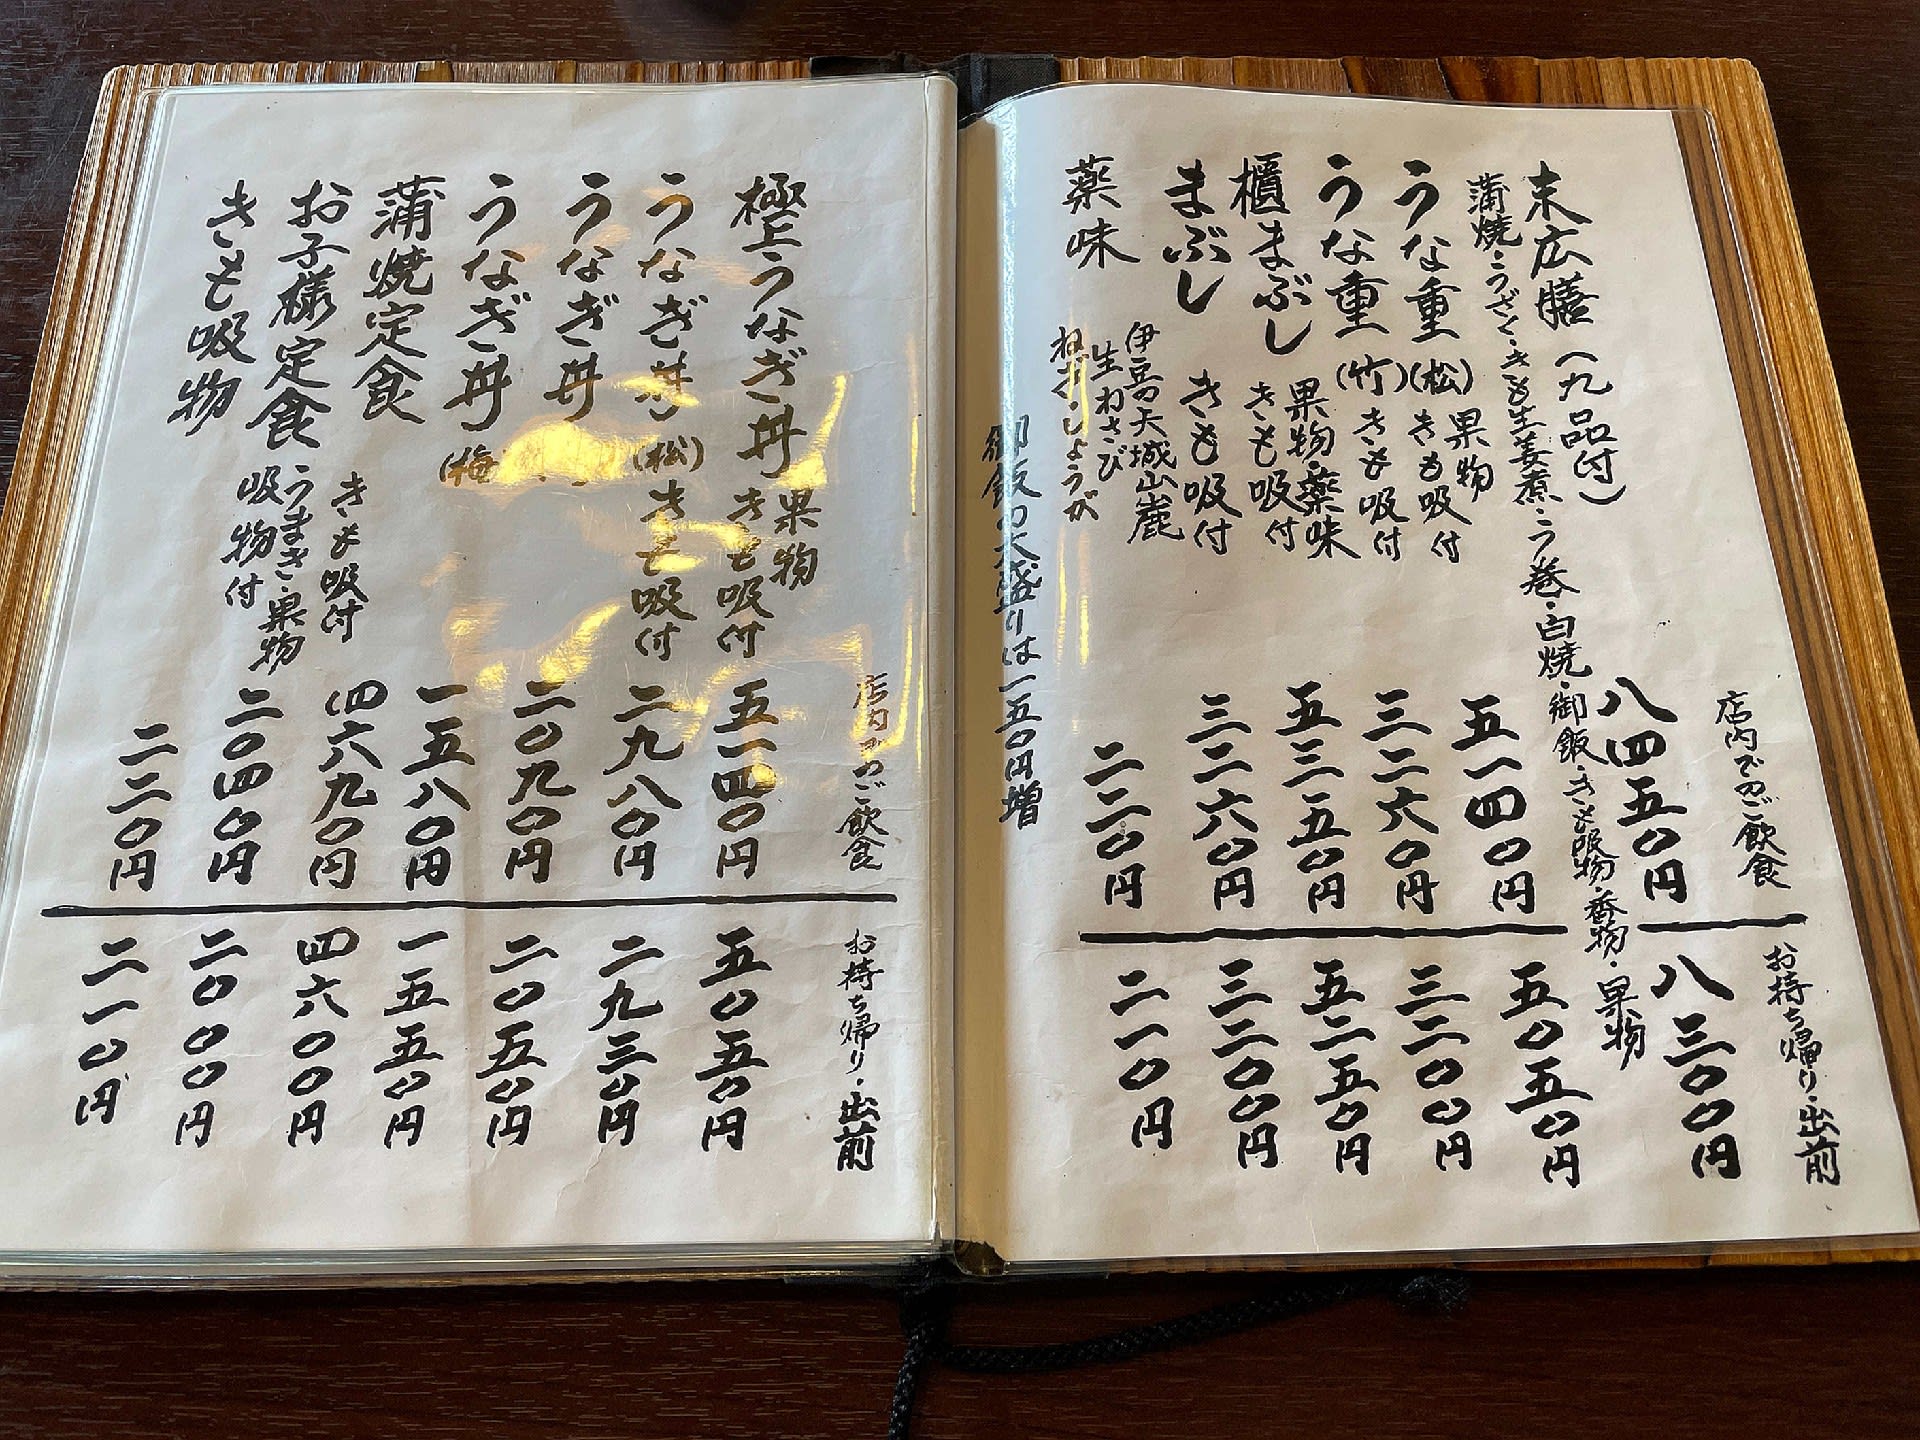 店内でのご飲食
お持ち帰り・出前
末広膳(九品付)
八四五〇円
八三〇〇円
蒲焼・うざく・きも生姜煮・う巻・白焼・御飯・きも吸物・香物・果物
うな重(松)
果物
きも吸付
五一四〇円
五〇五〇円
うな重(竹)
きも吸付
三二六〇円
三二〇〇円
櫃まぶし
果物・薬味
きも吸付
五三五〇円
五二五〇円
まぶし
きも吸付
三二六〇円
三二〇〇円
薬味
伊豆天城山麓
生わさび
ねぎ・しょうが
二二〇円
二一〇円
御飯の大盛りは一五〇円増
店内でのご飲食
お持ち帰り・出前
極上うなぎ丼
果物
きも吸付
五一四〇円
五〇五〇円
うなぎ丼(松)
きも吸付
二九八〇円
二九三〇円
うなぎ丼
二〇九〇円
二〇五〇円
うなぎ丼(梅)
一五八〇円
一五五〇円
蒲焼定食
きも吸付
四六九〇円
四六〇〇円
お子様定食
うまき・果物
吸物付
二〇四〇円
二〇〇〇円
きも吸物
二二〇円
二一〇円